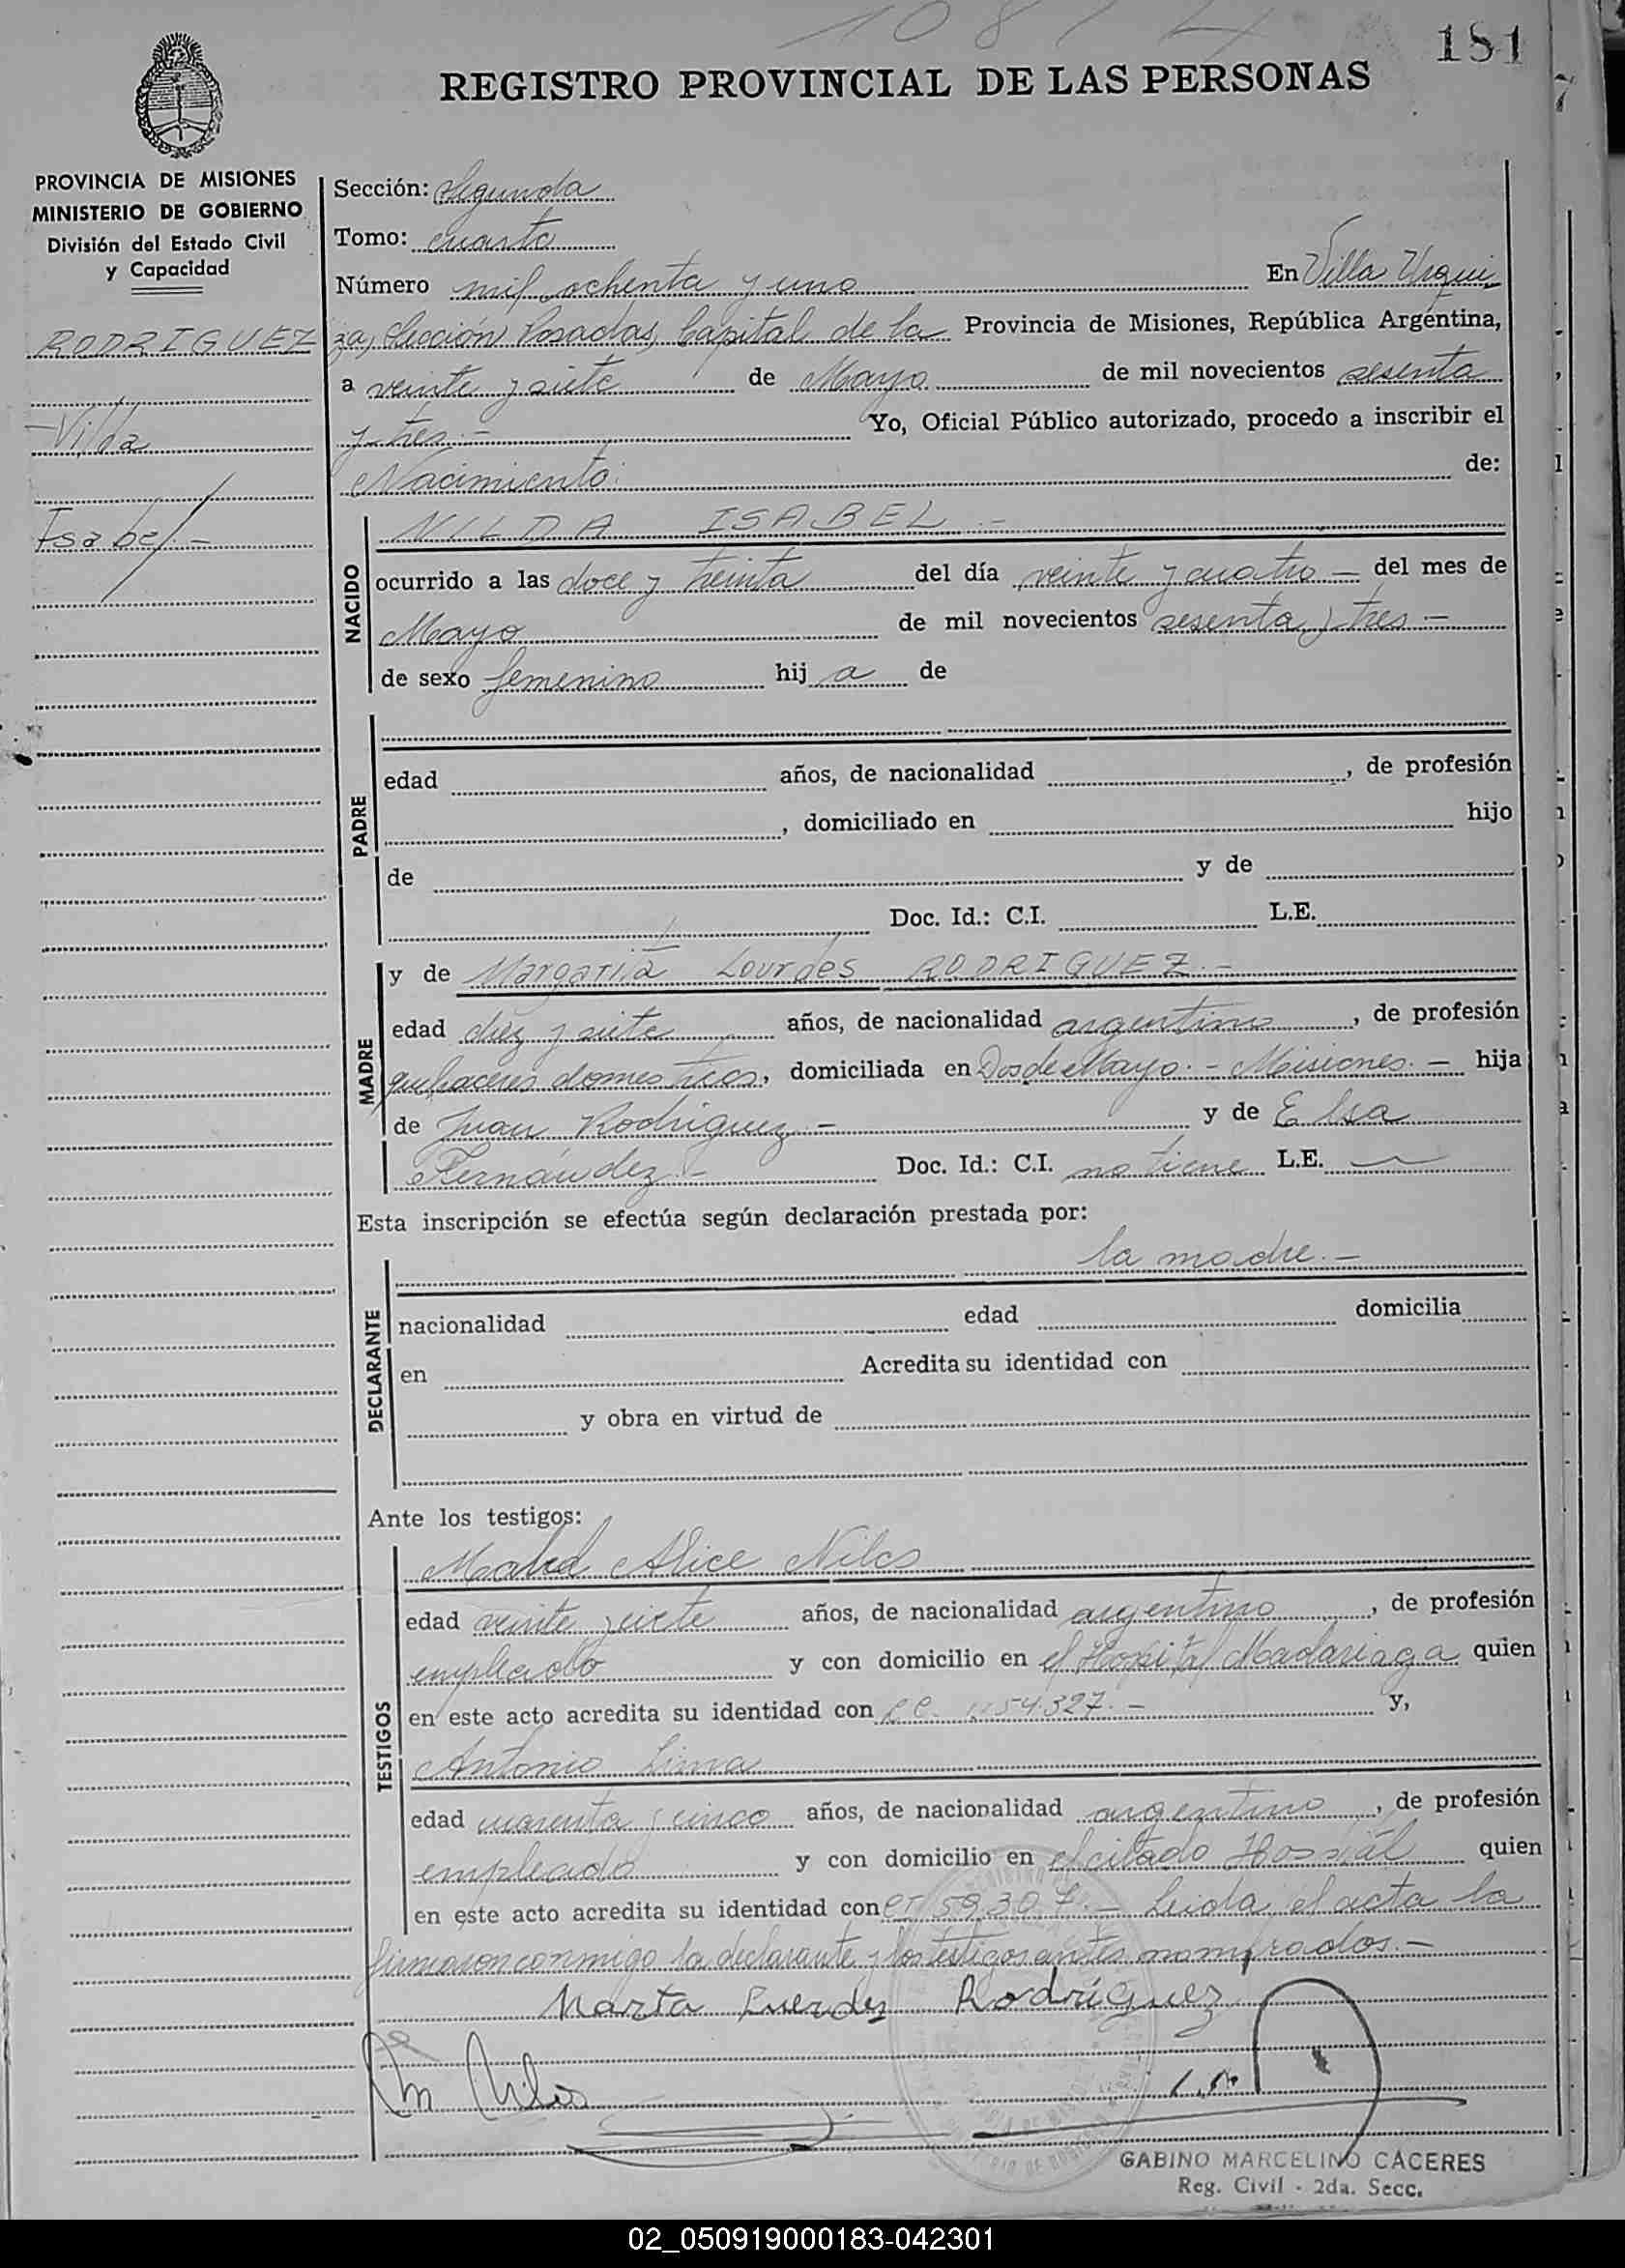 1081 4
181
REGISTRO PROVINCIAL DE LAS PERSONAS
PROVINCIA DE MISIONES
MINISTERIO DE GOBIERNO
División del Estado Civil
y Capacidad
RODRIGUEZ
Nilda
Isabel.-
Sección: Segunda
Tomo: cuarto
Número mil ochenta y uno En Villa Urqui
za, Sección Posadas, Capital de la Provincia de Misiones, República Argentina,
a veinte y siete de Mayo de mil novecientos sesenta
y tres.- Yo, Oficial Público autorizado, procedo a inscribir el
Nacimiento: de:
NACIDO
NILDA ISABEL.-
ocurrido a las doce y treinta del día veinte y cuatro - del mes de
Mayo de mil novecientos sesenta y tres.-
de sexo femenino hij a de
PADRE
edad años, de nacionalidad , de profesión
, domiciliado en hijo
de y de
Doc. Id.: C.I. L.E.
MADRE
y de Margarita Lourdes RODRIGUEZ.-
edad diez y siete años, de nacionalidad argentina , de profesión
quehaceres domesticos, domiciliada en Dos de Mayo.- Misiones.- hija
de Juan Rodriguez.- y de Elsa
Fernández.- Doc. Id.: C.I. no tiene L.E. -
Esta inscripción se efectúa según declaración prestada por:
DECLARANTE
la madre.-
nacionalidad edad domicilia
en Acredita su identidad con
y obra en virtud de
Ante los testigos:
TESTIGOS
Alice Niles
edad veinte y siete años, de nacionalidad argentino , de profesión
empleado y con domicilio en el Hospital Madariaga quien
en este acto acredita su identidad con 54.327.- y,
Antonio Lima
edad cuarenta y cinco años, de nacionalidad argentino , de profesión
empleado y con domicilio en el citado Hospital quien
en este acto acredita su identidad con 59.307.- Leida el acta la
firmaron conmigo la declarante y los testigos antes nombrados.-
Marta Luerdes Rodríguez
GABINO MARCELINO CACERES
Reg. Civil - 2da. Secc.
02_050919000183-042301